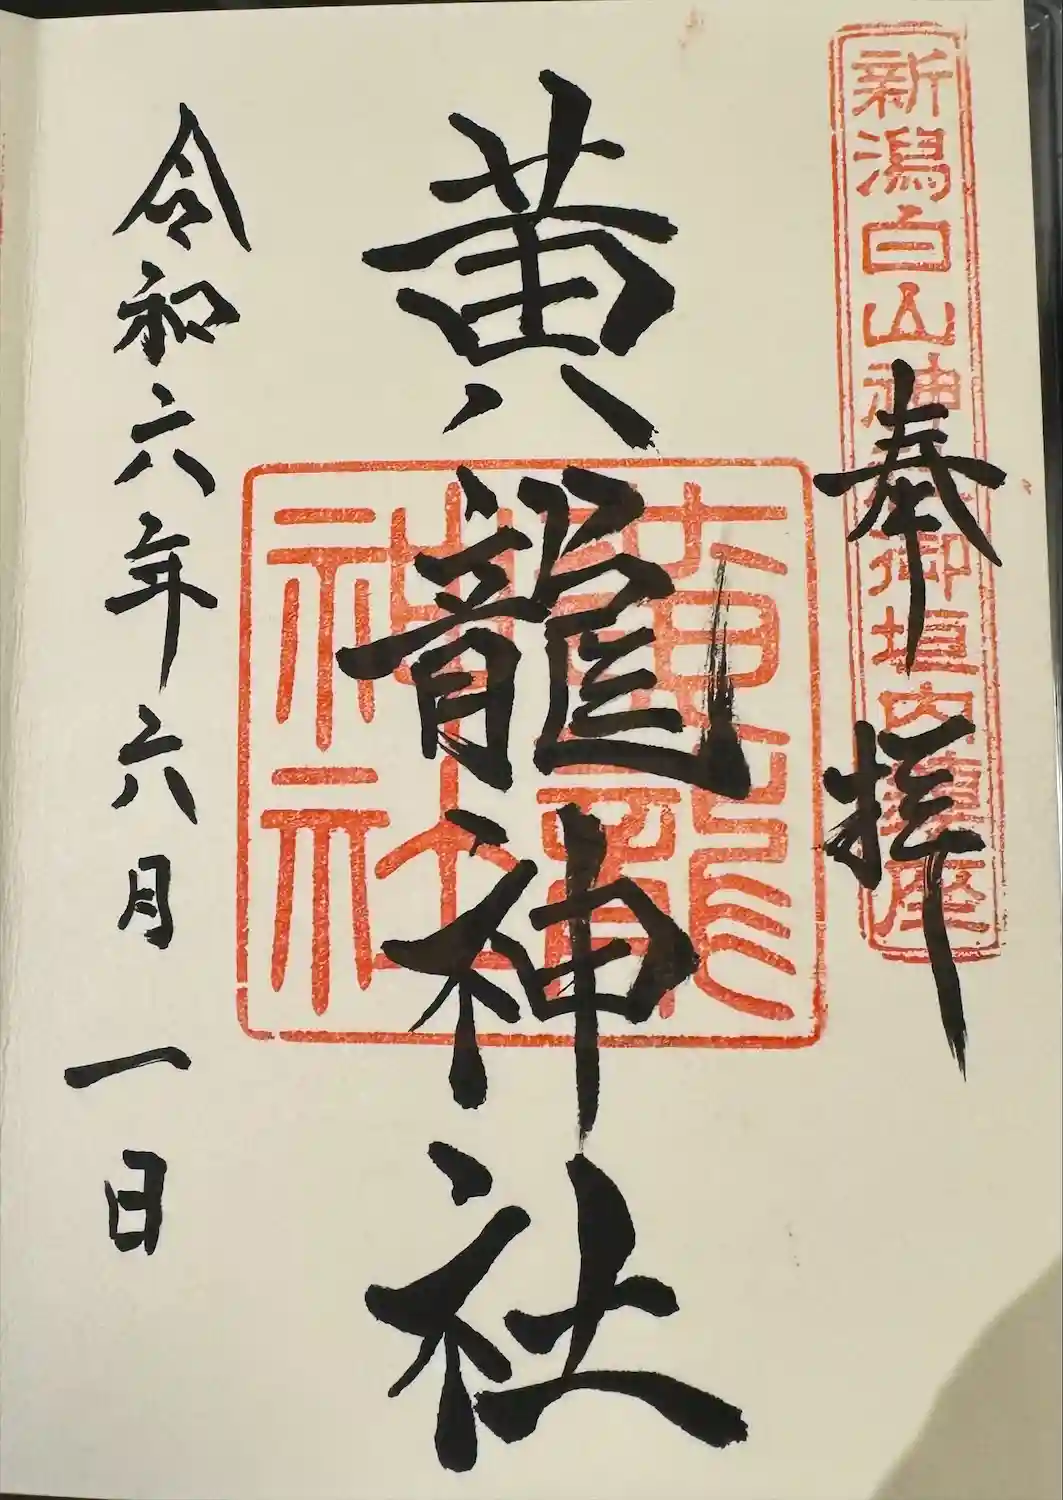 新潟白山神社御垣内鎮座
奉拝
黄龍神社
黄龍
神社
令和六年六月一日